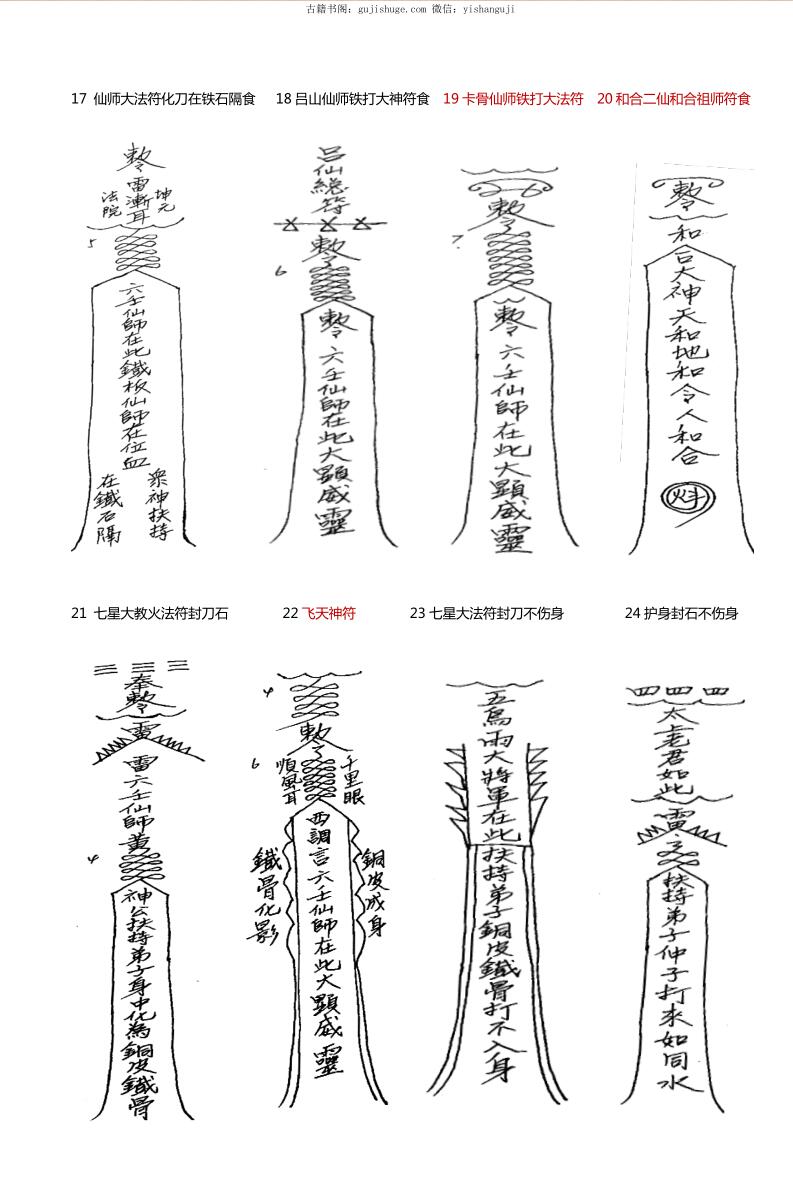 古籍书阁：gujishuge.com 微信：yishanguji
17 仙师大法符化刀在铁石隔食
18 吕山仙师铁打大神符食
19 卡骨仙师铁打大法符
20 和合二仙和合祖师符食
敕令
雷漸耳
坤元
法院
5
六壬仙師在此鐵板仙師在位血
衆神扶持
在鐵石隔
吕仙總符
敕令
6
敕令
六壬仙師在此大顯威靈
敕令
7.
敕令
六壬仙師在此大顯威靈
敕令
和
合大神天和地和令人和合
21 七星大教火法符封刀石
22 飞天神符
23 七星大法符封刀不伤身
24 护身封石不伤身
三 三 三
奉敕令
雷
雷六壬仙師黄
4
神公扶持弟子身中化為銅皮鐵骨
4
敕令
6
千里眼
順風耳
西調言六壬仙師在此大顯威靈
銅皮成身
鐵骨化影
五鳥雨大將軍在此
扶持弟子銅皮鐵骨打不入身
四 四 四
太上老君如此
雷
扶持弟子仲子打來如同水